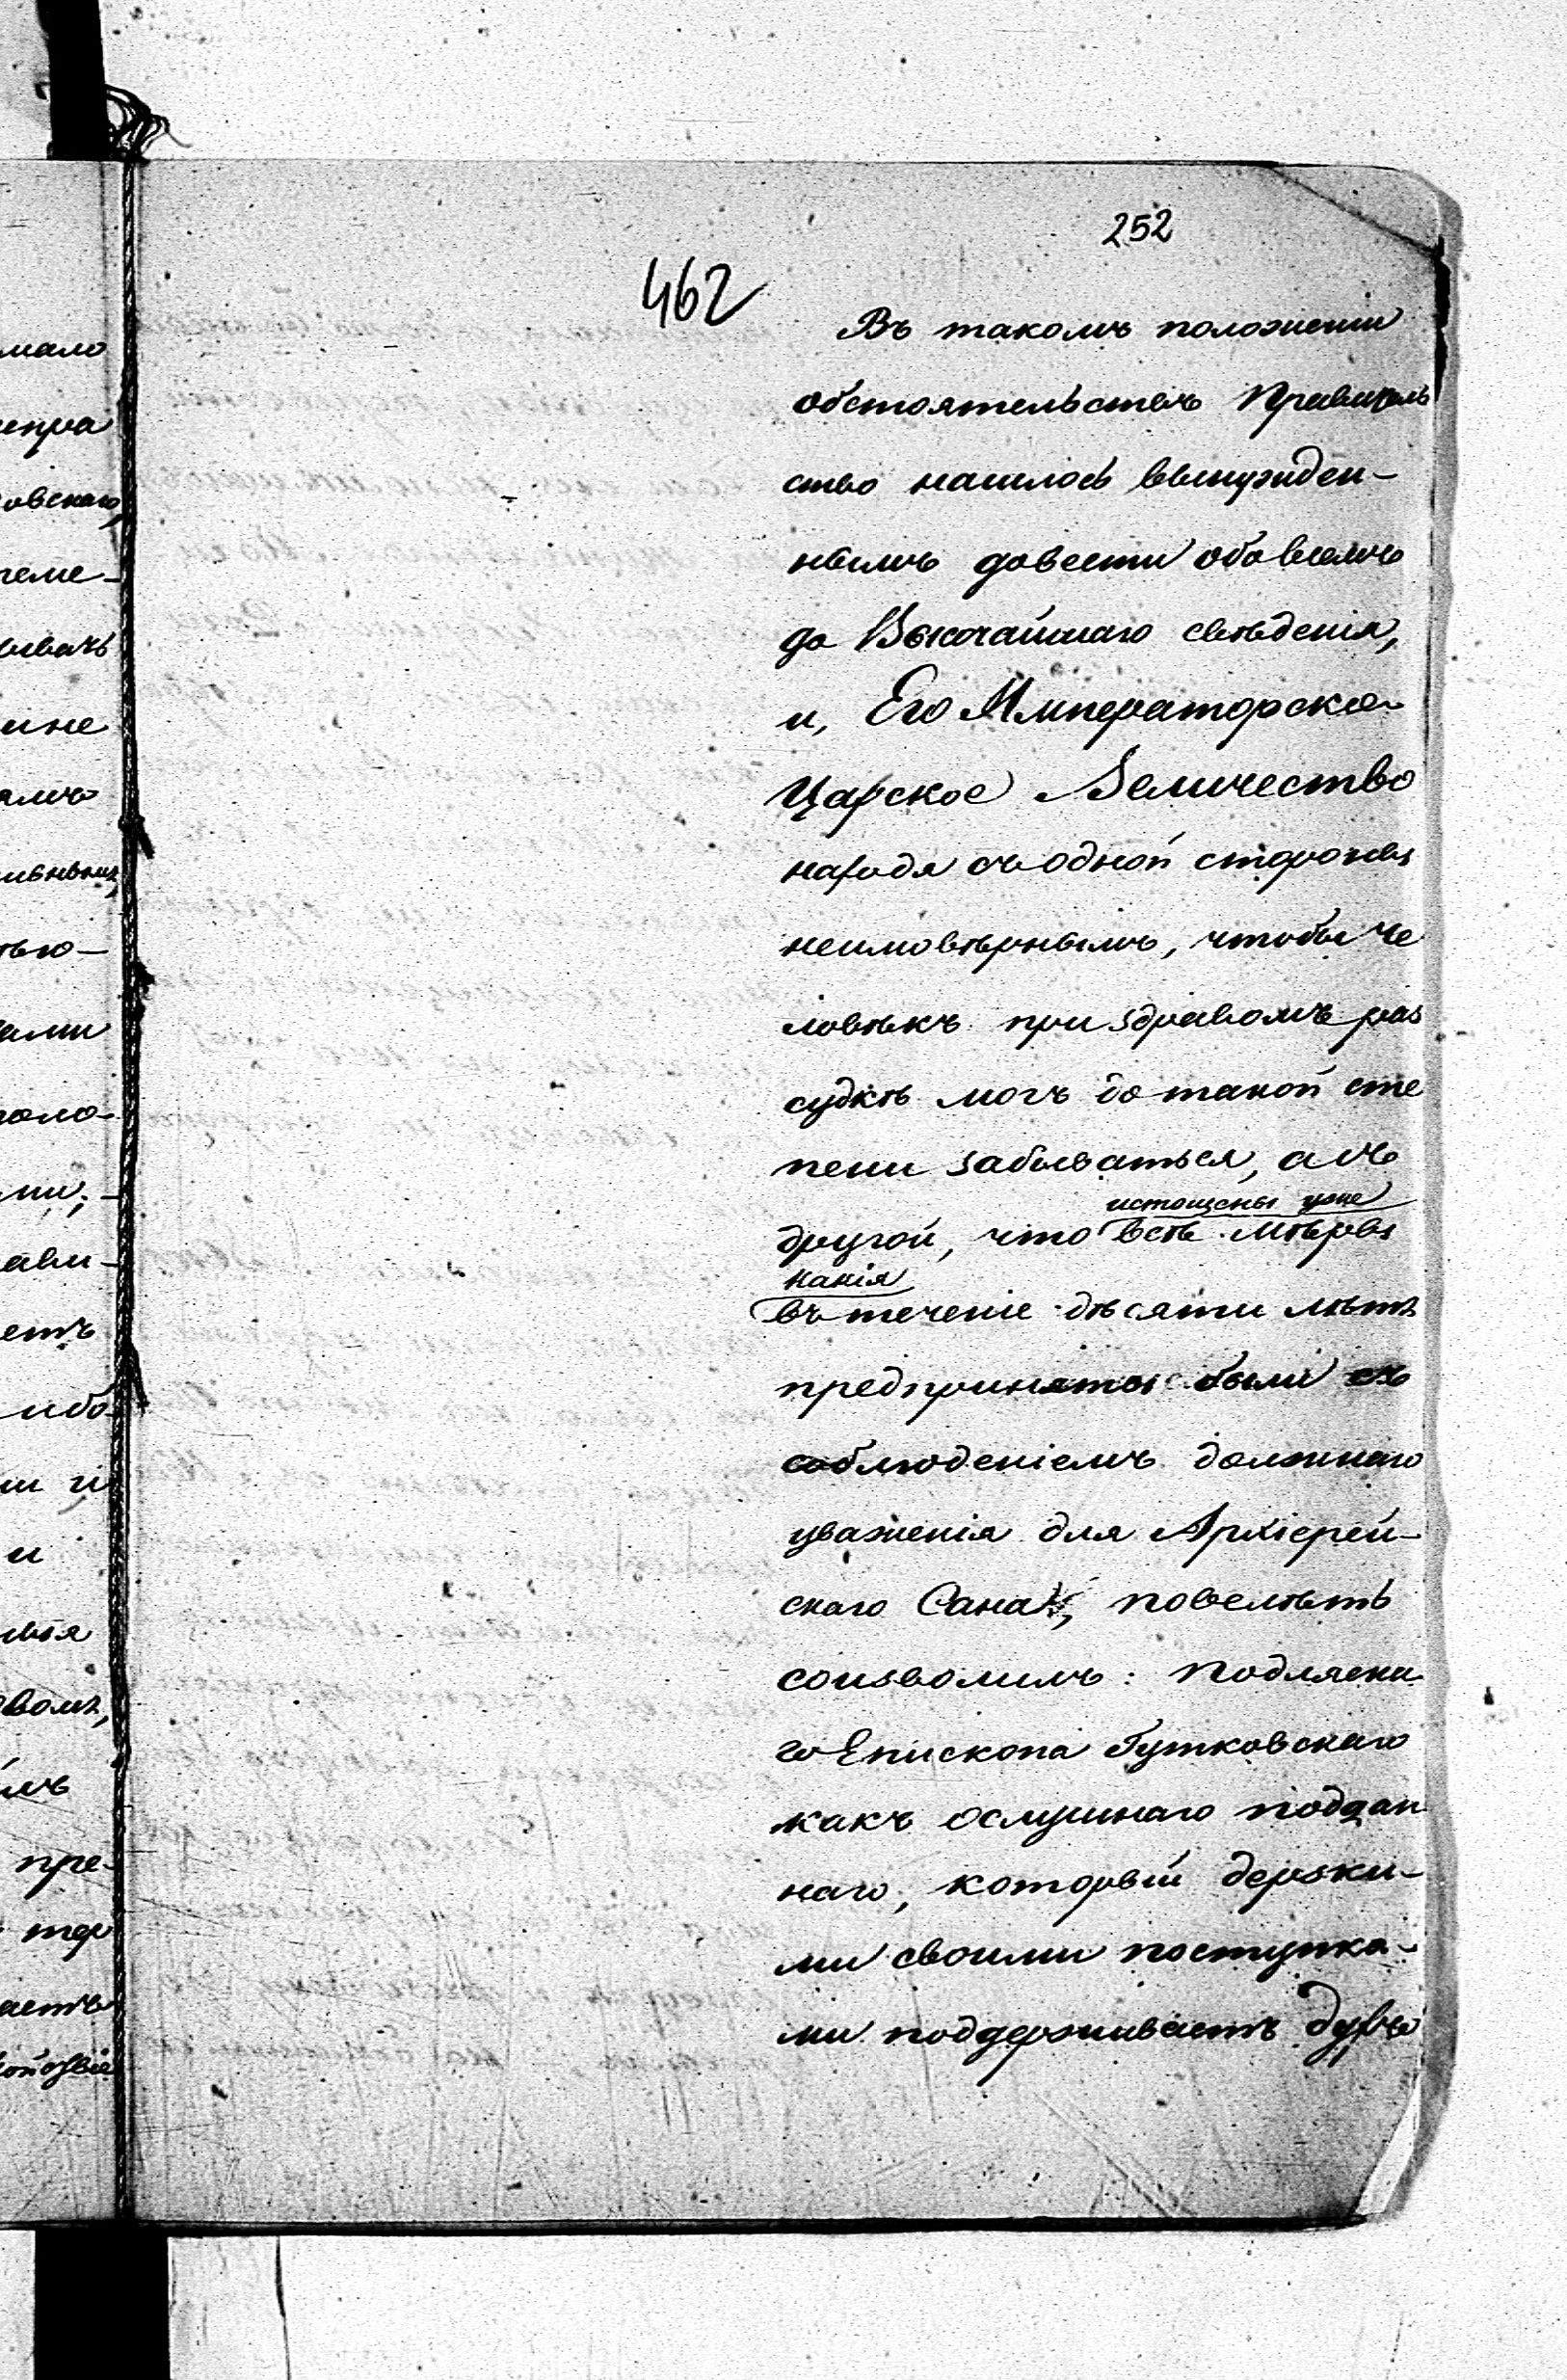 252
462
Въ такомъ положеніи
обстоятельствъ Правитель
ство нашлось вынужден-
нымъ довести обо всемъ
до Высочайшаго свѣдѣнія,
и, Его Императорско-
Царское Величество
находя съ одной стороны
неимовѣрнымъ, чтобы че
ловѣкъ при здравомъ раз
судкѣ могъ до такой сте
пени забываться, а съ
истощены уже
другой, что всѣ мѣры
какія
въ теченіе десяти лѣтъ
предприняты были съ
соблюденіемъ должнаго
уваженія для Архіерей-
скаго Сана, повелѣть
соизволилъ: Подляска
го Епископа Гутковскаго
какъ ослушнаго поддан
наго, который дерзки-
ми своими поступка-
ми поддерживаетъ духъ
мало
овскаго,
еме-
ывать
и не
тью-
ами
поло-
ави-
етъ
ибо
и
пре-
тер